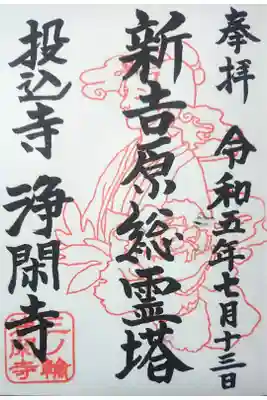 奉拝
令和五年七月十三日
新吉原総霊塔
投込寺
浄閑寺
三ノ輪
浄閑寺